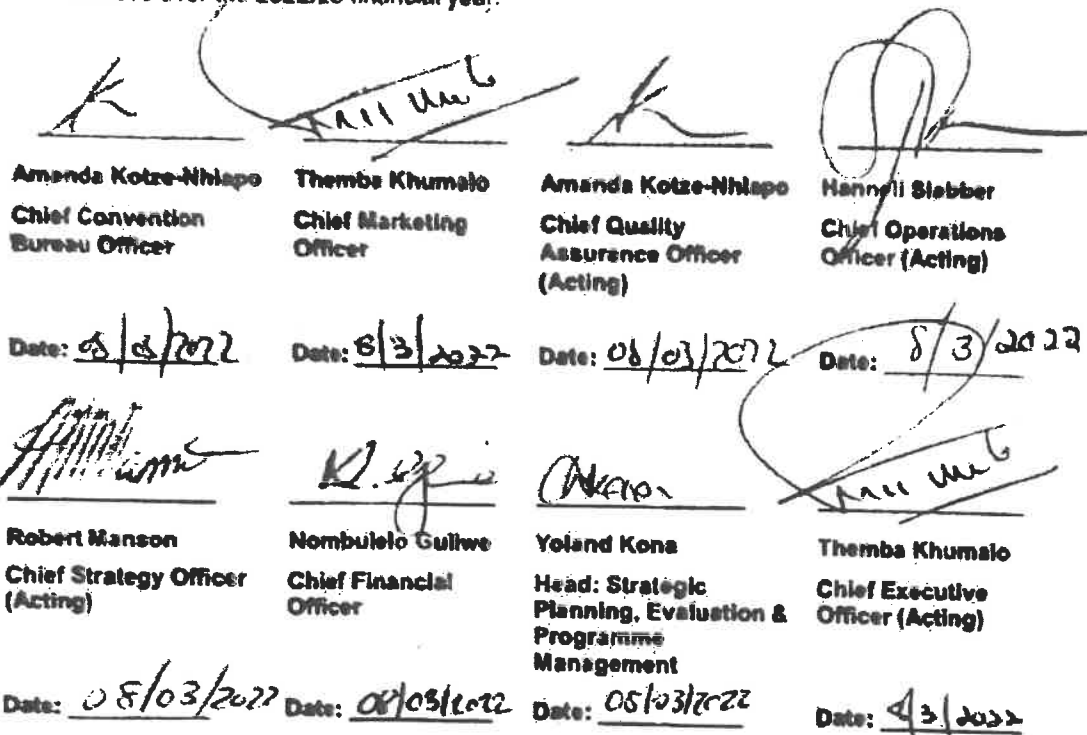 over the 2022/23 financial year.
Amanda Kotze-Nhlapo
Chief Convention
Bureau Officer
Date: 08/03/2022
Themba Khumalo
Chief Marketing
Officer
Date: 8/3/2022
Amanda Kotze-Nhlapo
Chief Quality
Assurance Officer
(Acting)
Date: 08/03/2022
Hanneli Slabber
Chief Operations
Officer (Acting)
Date: 8/3/2022
Robert Manson
Chief Strategy Officer
(Acting)
Date: 08/03/2022
Nombulelo Guliwe
Chief Financial
Officer
Date: 08/03/2022
Yoland Kona
Head: Strategic
Planning, Evaluation &
Programme
Management
Date: 08/03/2022
Themba Khumalo
Chief Executive
Officer (Acting)
Date: